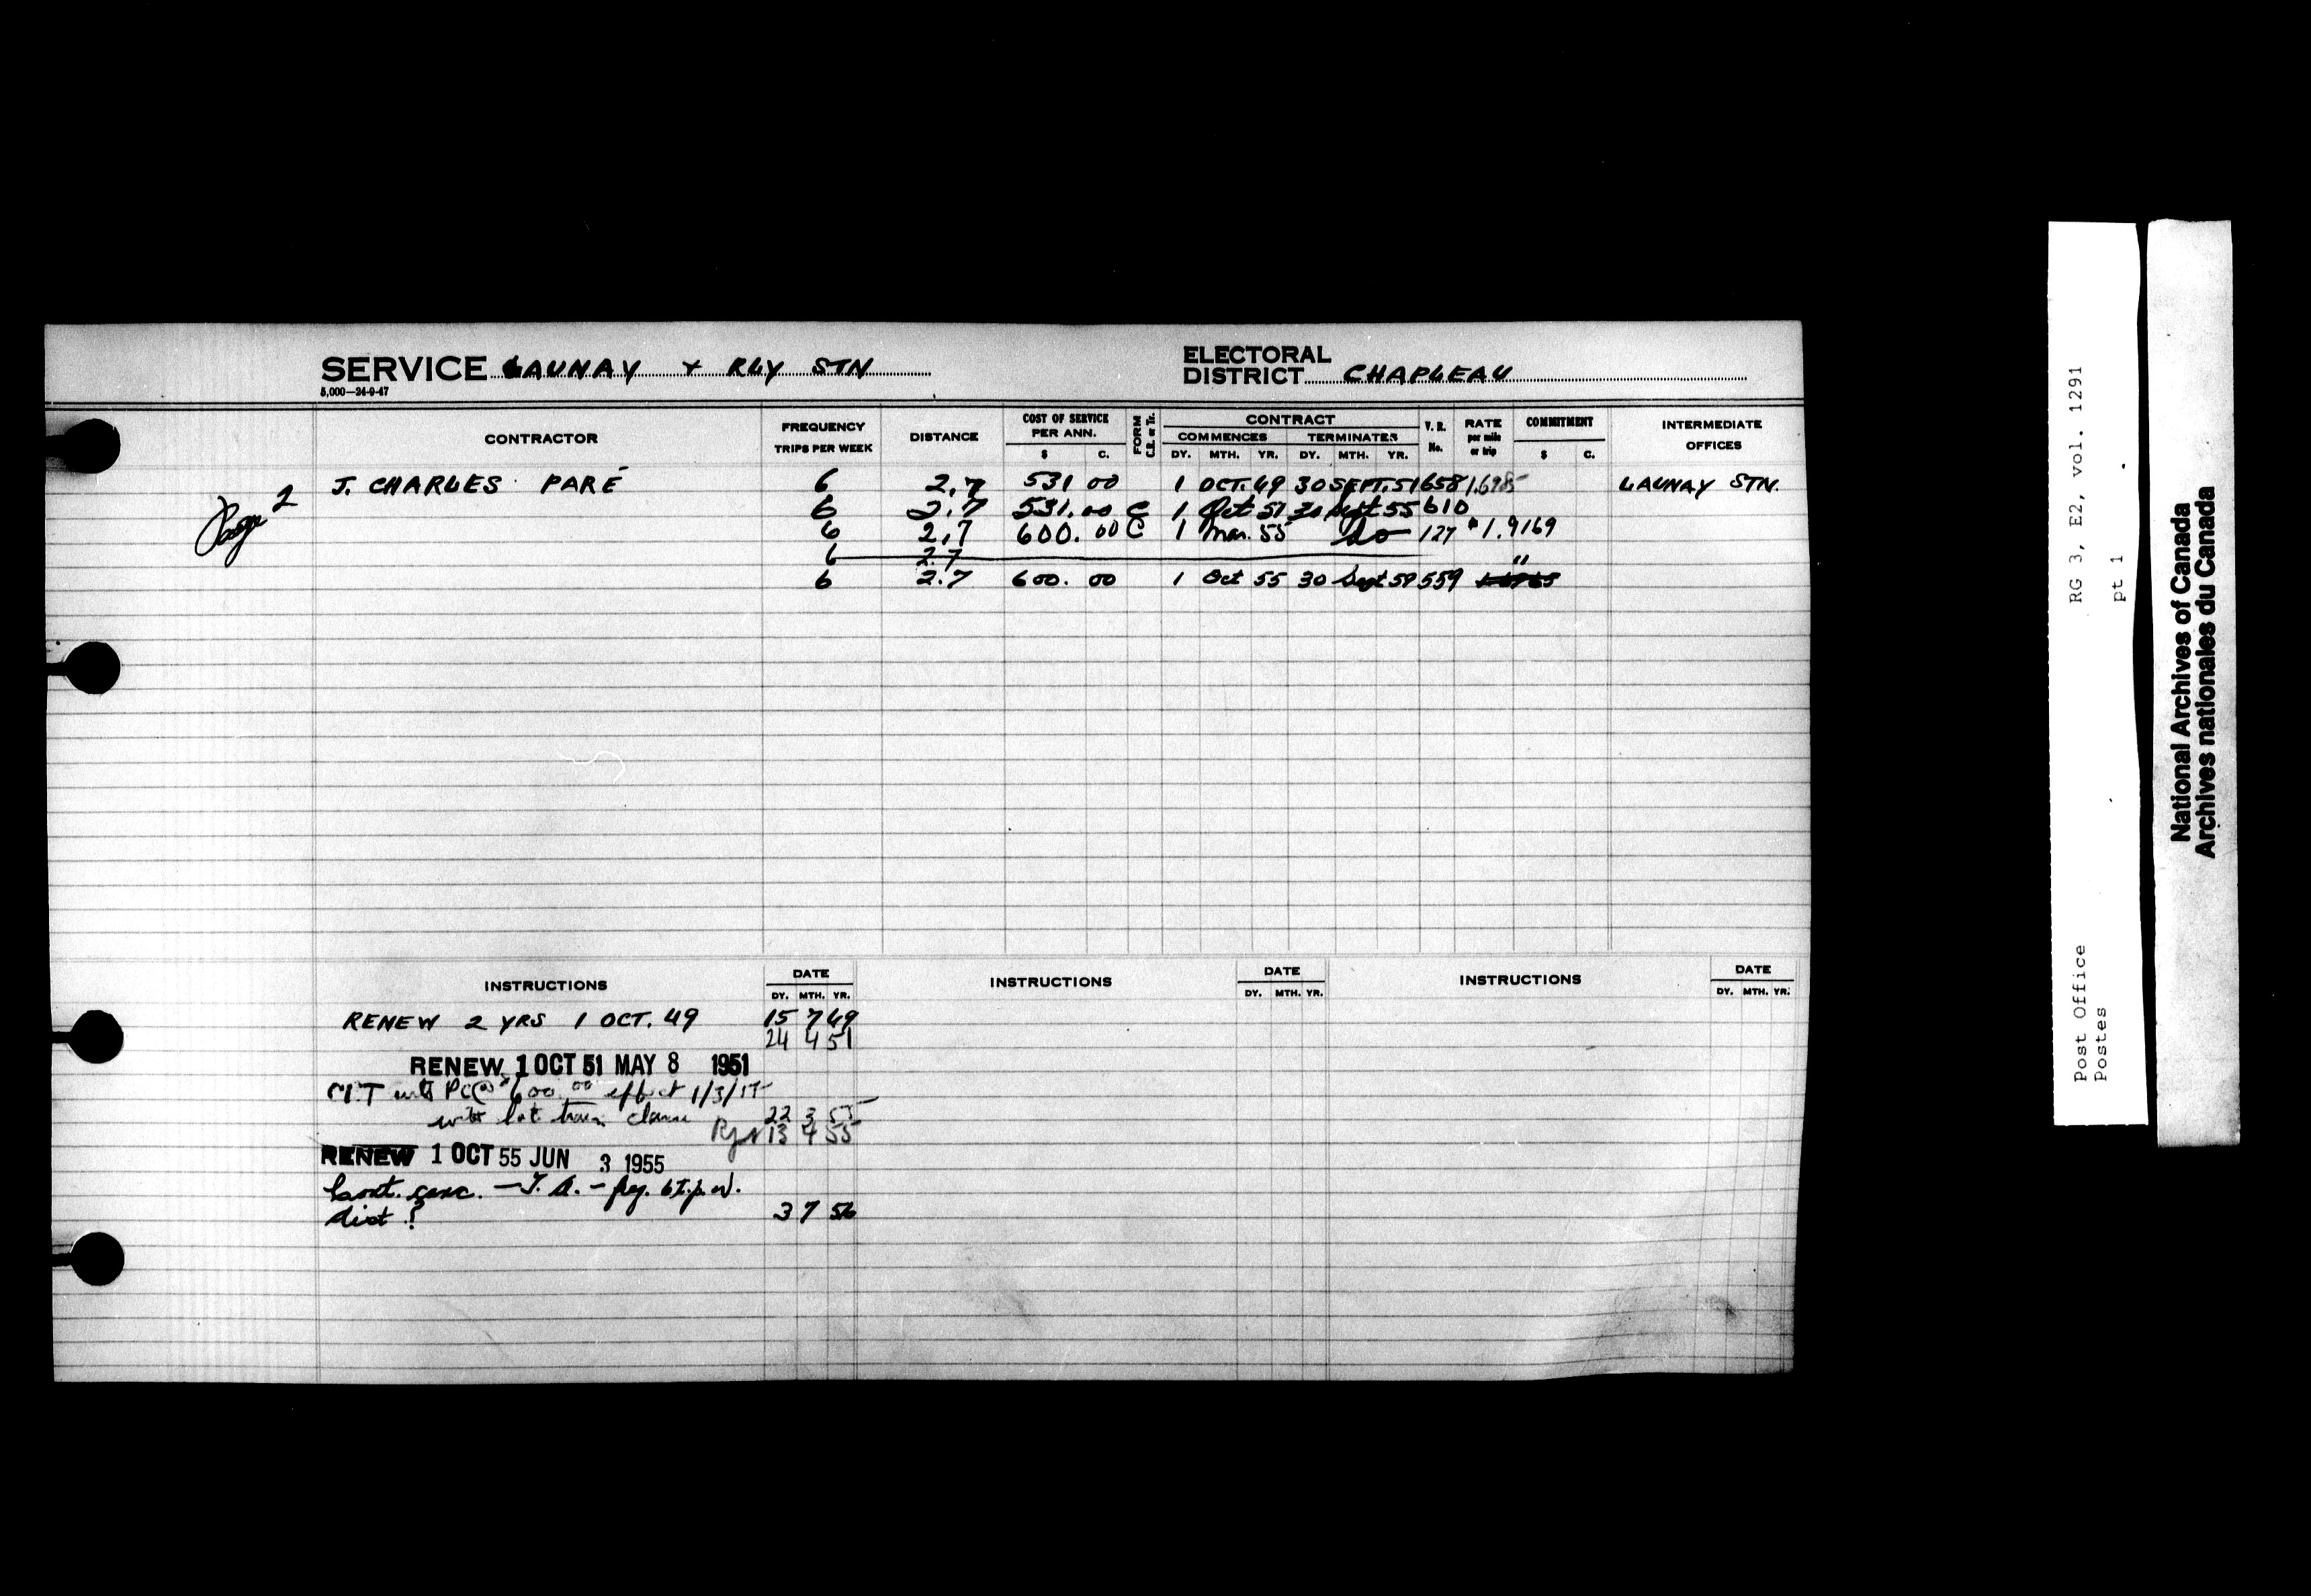 SERVICE LAUNAY + RLY STN
5,000—24-9-47
ELECTORAL DISTRICT CHAPLEAU
CONTRACTOR FREQUENCY TRIPS PER WEEK DISTANCE COST OF SERVICE PER ANN. $ C. FORM CONTRACT COMMENCES DY. MTH. YR. TERMINATES DY. MTH. YR. V. R. No. RATE per mile or trip COMMITMENT $ C. INTERMEDIATE OFFICES
J. CHARLES PARÉ 6 2.7 531 00 1 OCT. 49 30 SEPT. 51 658 1.6985 LAUNAY STN.
Page 2
6 2.7 531.00 C 1 Oct 51 30 Sept 55 610
6 2.7 600.00 C 1 Mar. 55 do 127 $1.9169
6 2.7 "
6 2.7 600.00 1 Oct 55 30 Sept 59 559
INSTRUCTIONS DATE DY. MTH. YR. INSTRUCTIONS DATE DY. MTH. YR. INSTRUCTIONS DATE DY. MTH. YR.
RENEW 2 YRS 1 OCT. 49 15 7 49
24 4 51
RENEW 1 OCT 51 MAY 8 1951
PC@ $600.00 effect 1/3/55
with late train clause 22 3 55
13 4 55
RENEW 1 OCT 55 JUN 3 1955
Cont. canc. — T. A. — 6 t.p.w.
dist ? 3 7 56
RG 3, E2, vol. 1291
pt 1
Post Office
Postes
National Archives of Canada
Archives nationales du Canada